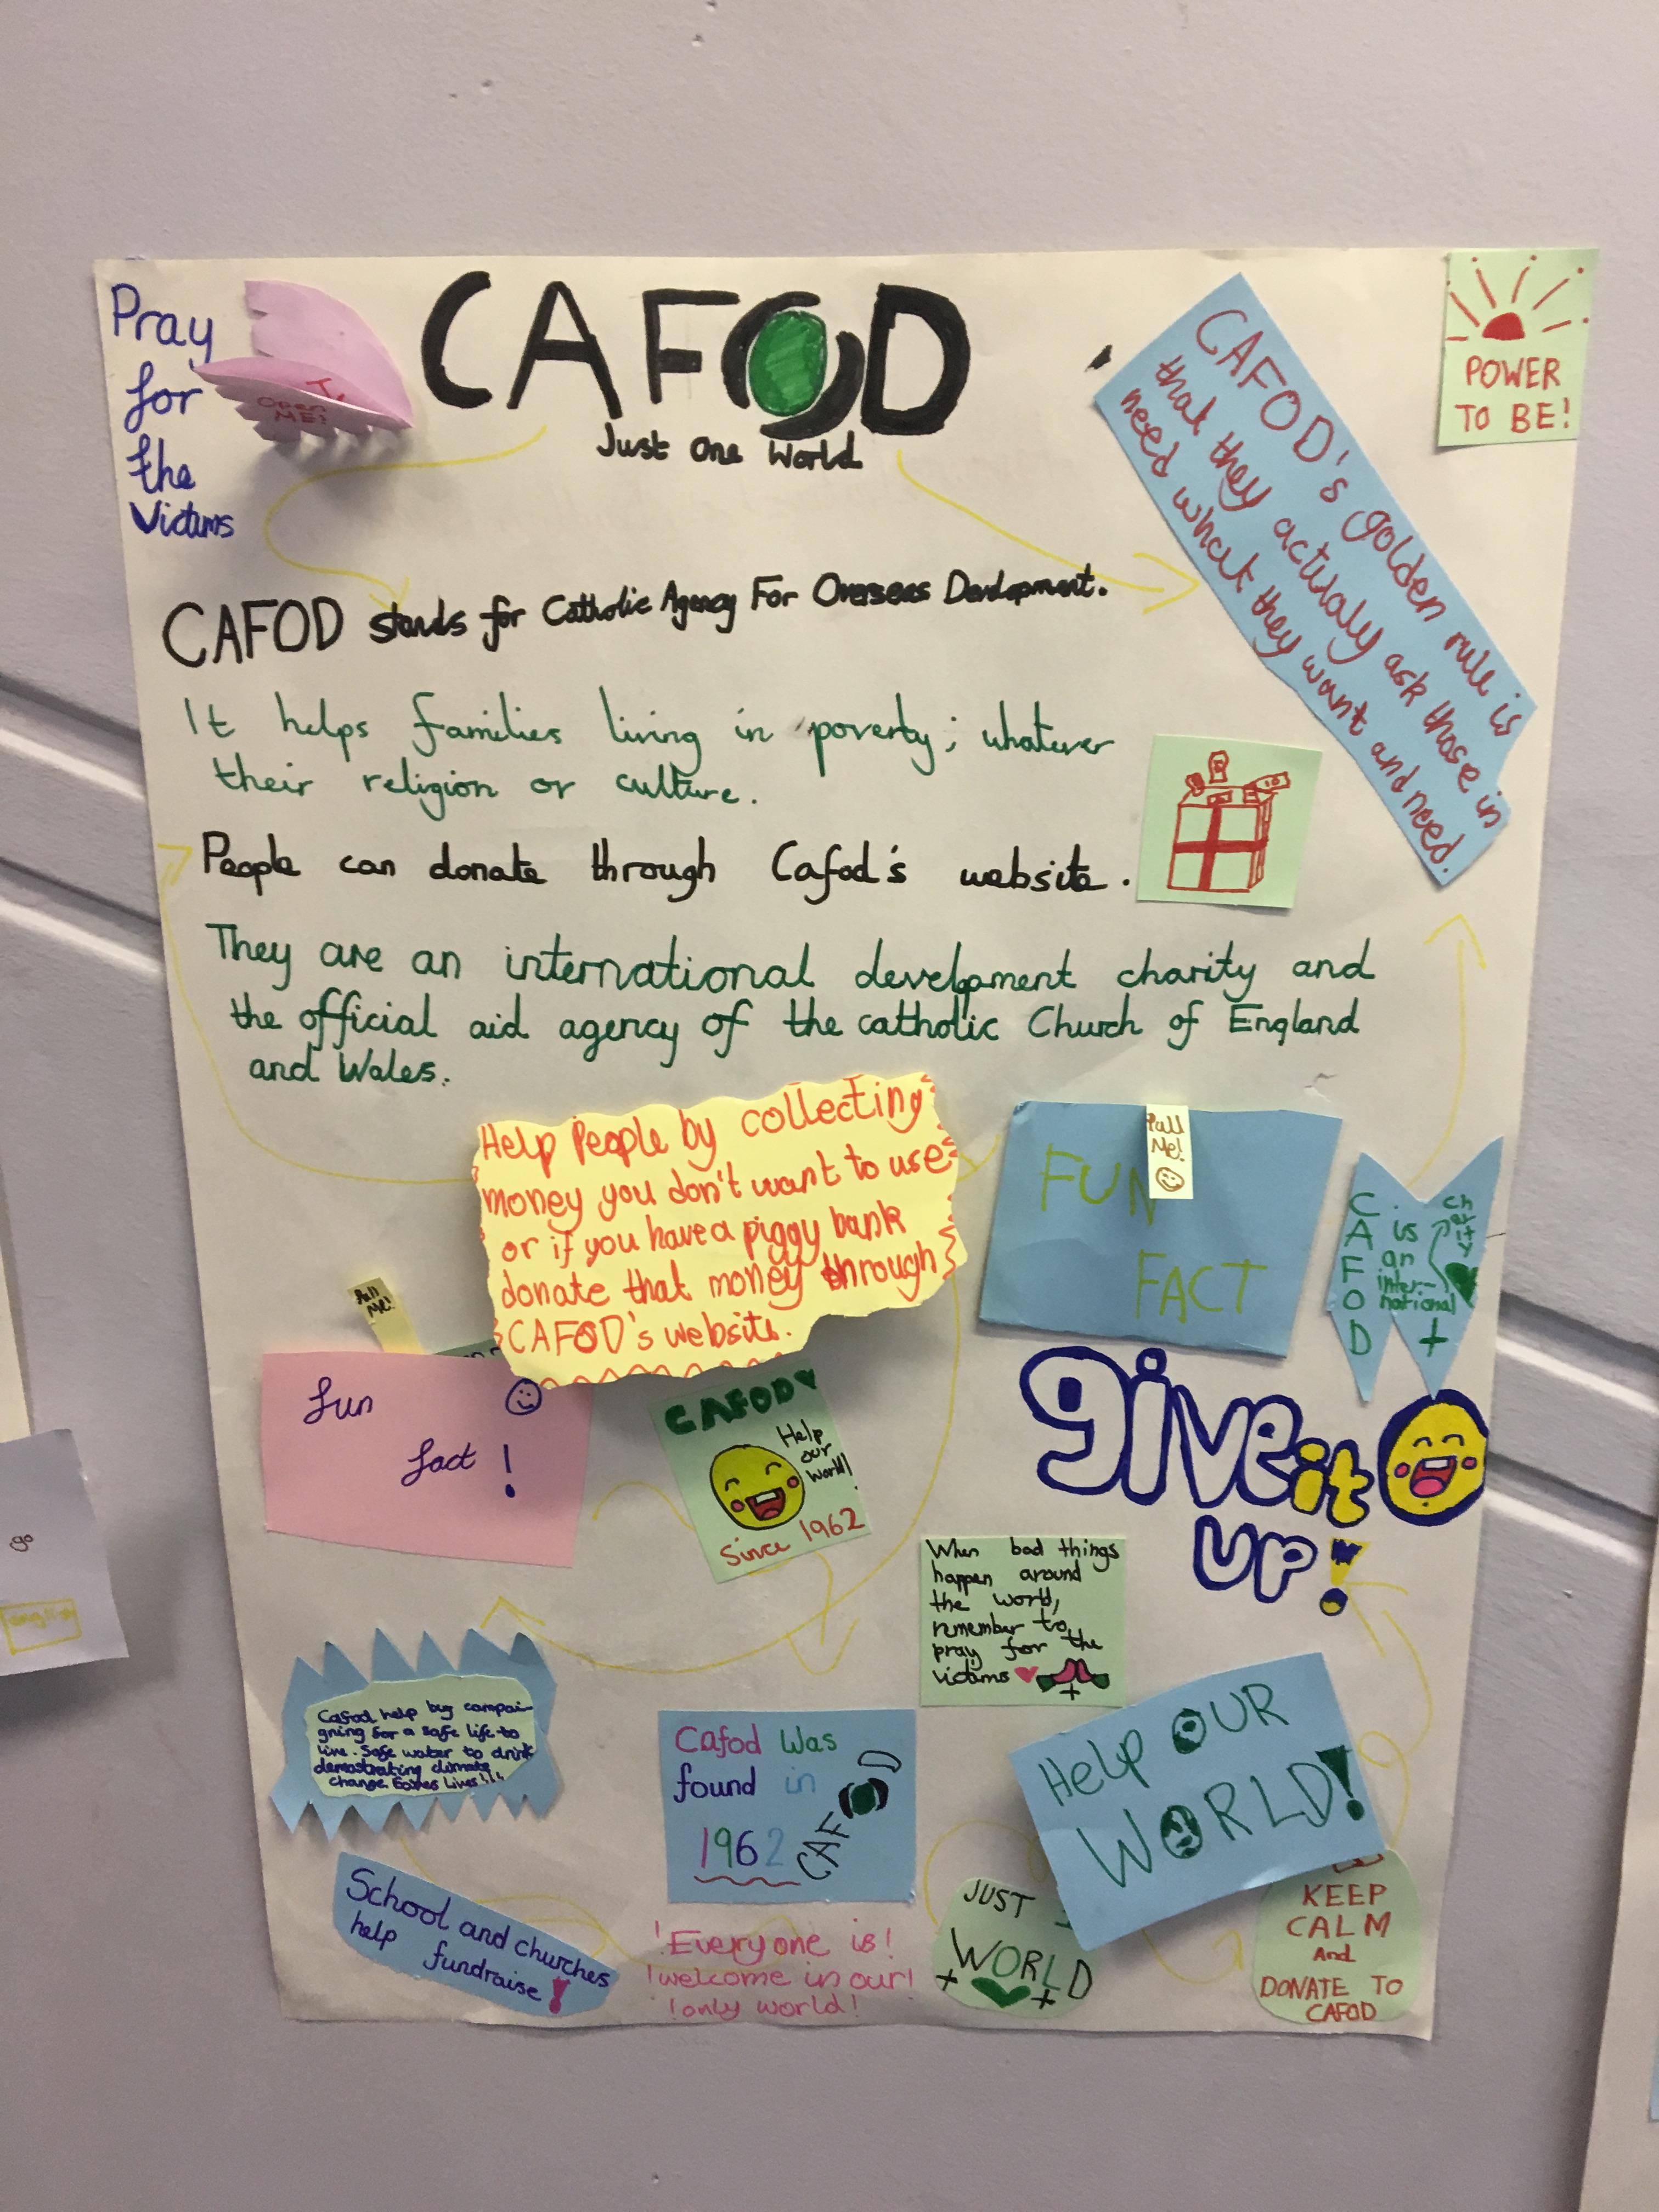 Pray
for
the
Victims
Open
ME!
CAFOD
Just One World
CAFOD's golden rule is
that they actualy ask those in
need what they want and need.
POWER
TO BE!
CAFOD stands for Catholic Agency For Overseas Development.
It helps families living in poverty; whatever
their religion or culture.
People can donate through Cafod's website.
They are an international development charity and
the official aid agency of the catholic Church of England
and Wales.
Help People by collecting
money you don't want to use
or if you have a piggy bank
donate that money through
CAFOD's website.
Pull
Me!
FUN
FACT
CAFOD
is
an
inter-
national
charity
Pull
Me!
fun
fact!
CAFOD
Help
our
world!
Since 1962
give it
up!
When bad things
happen around
the world,
remember to
pray for the
victims
Cafod help buy campai-
gning for a safe life to
live. Safe water to drink
climate
change. Lives!!!
Cafod was
found in
1962
CAFOD
Help OUR
WORLD!
School and churches
help fundraise!
!Everyone is!
!welcome in our!
!only world!
JUST
WORLD
KEEP
CALM
And
DONATE TO
CAFOD
go
english